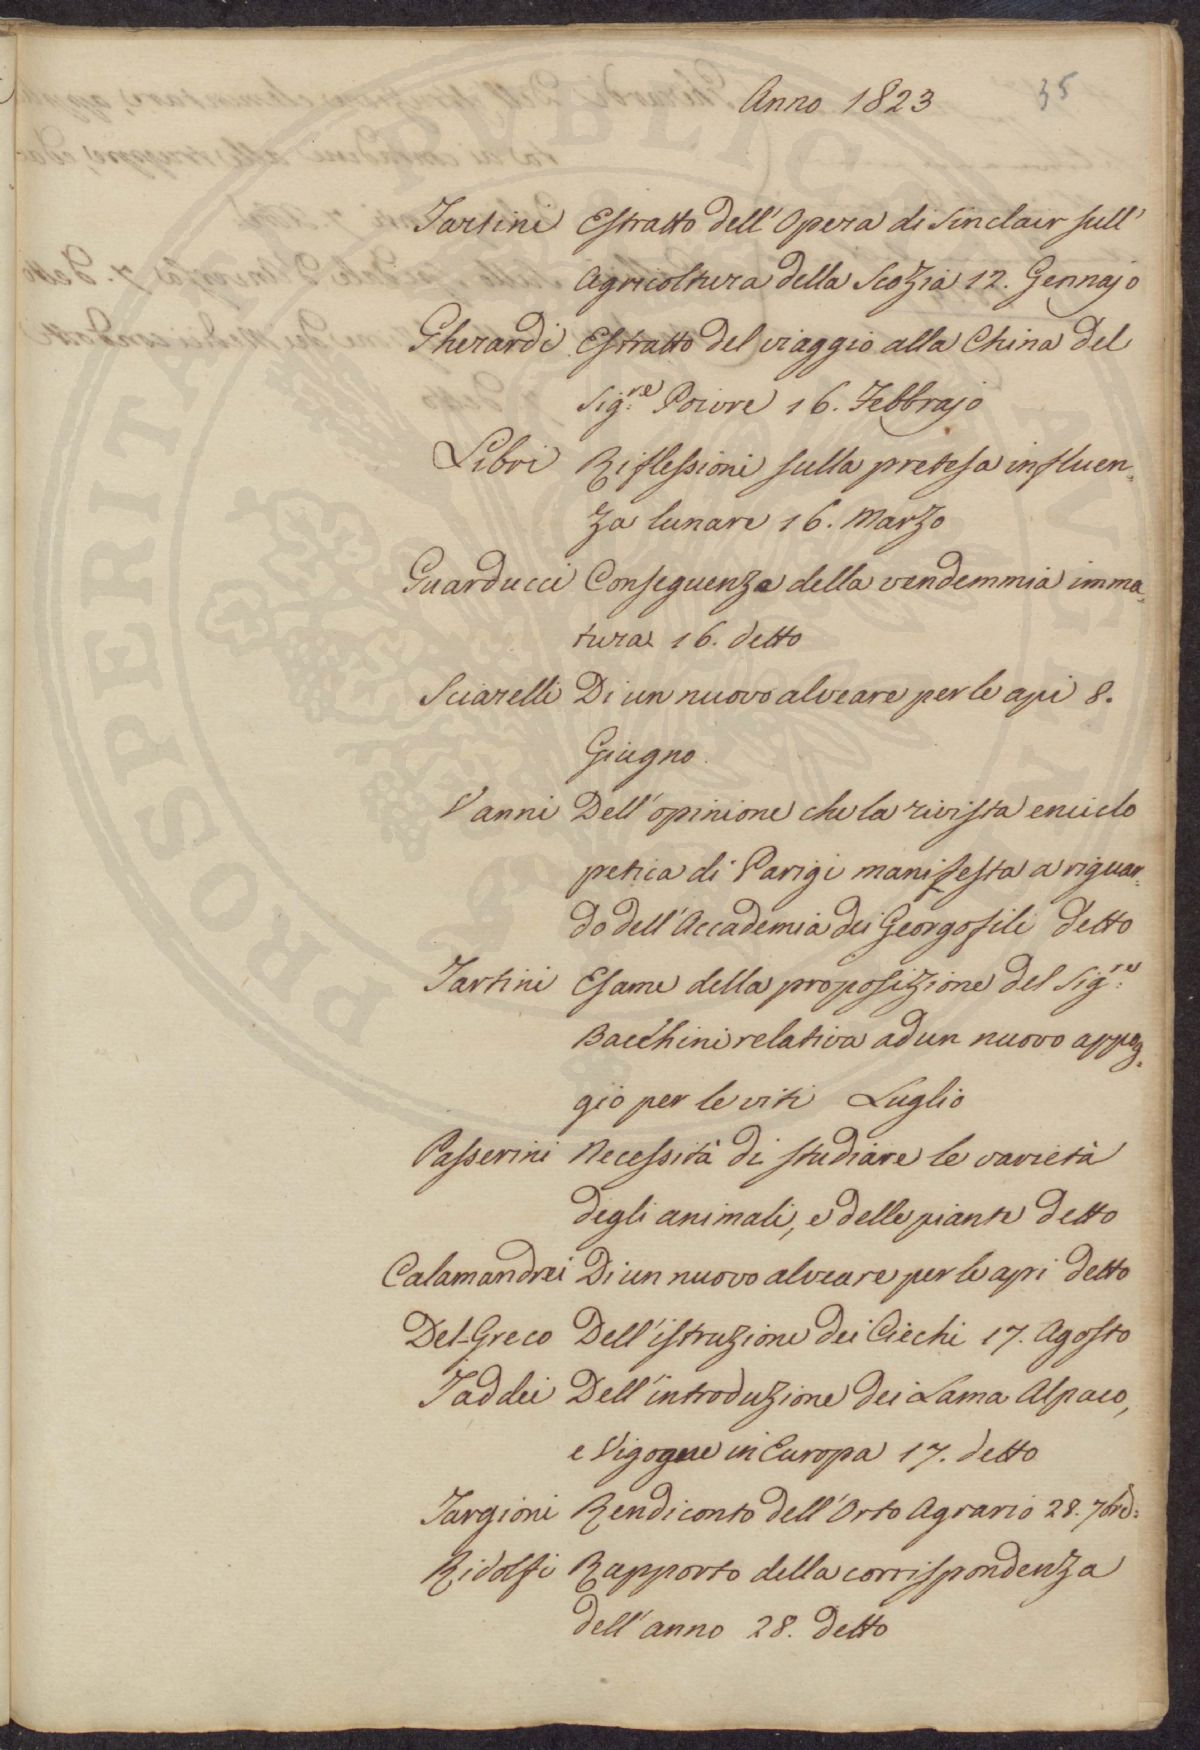 Anno 1823 35
Tartini Estratto dell'Opera di Sinclair sull'
Agricoltura della Scozia 12. Gennajo
Gherardi Estratto del viaggio alla China del
Sig.re Poivre 16. Febbrajo
Libri Riflessioni sulla pretesa influen-
za lunare 16. Marzo
Guarducci Conseguenze della vendemmia imma-
tura 16. detto
Sciarelli Di un nuovo alveare per le api 8.
Giugno.
Vanni Dell'opinione che la rivista enciclo
petica di Parigi manifesta a riguar-
do dell'Accademia dei Georgofili detto
Tartini Esame della proposizione del Sig.re
Bacchini relativa ad un nuovo appog-
gio per le viti Luglio
Passerini Necessità di studiare le varietà
degli animali, e delle piante detto
Calamandrei Di un nuovo alveare per le api detto
Del-Greco Dell'istruzione dei Ciechi 17. Agosto
Taddei Dell'introduzione dei Lama Alpaco,
e Vigogne in Europa 17. detto
Targioni Rendiconto dell'Orto Agrario 28. 7bre:
Ridolfi Rapporto della corrispondenza
dell'anno 28. detto
PROSPERITATI PUBLICAE AUGENDAE